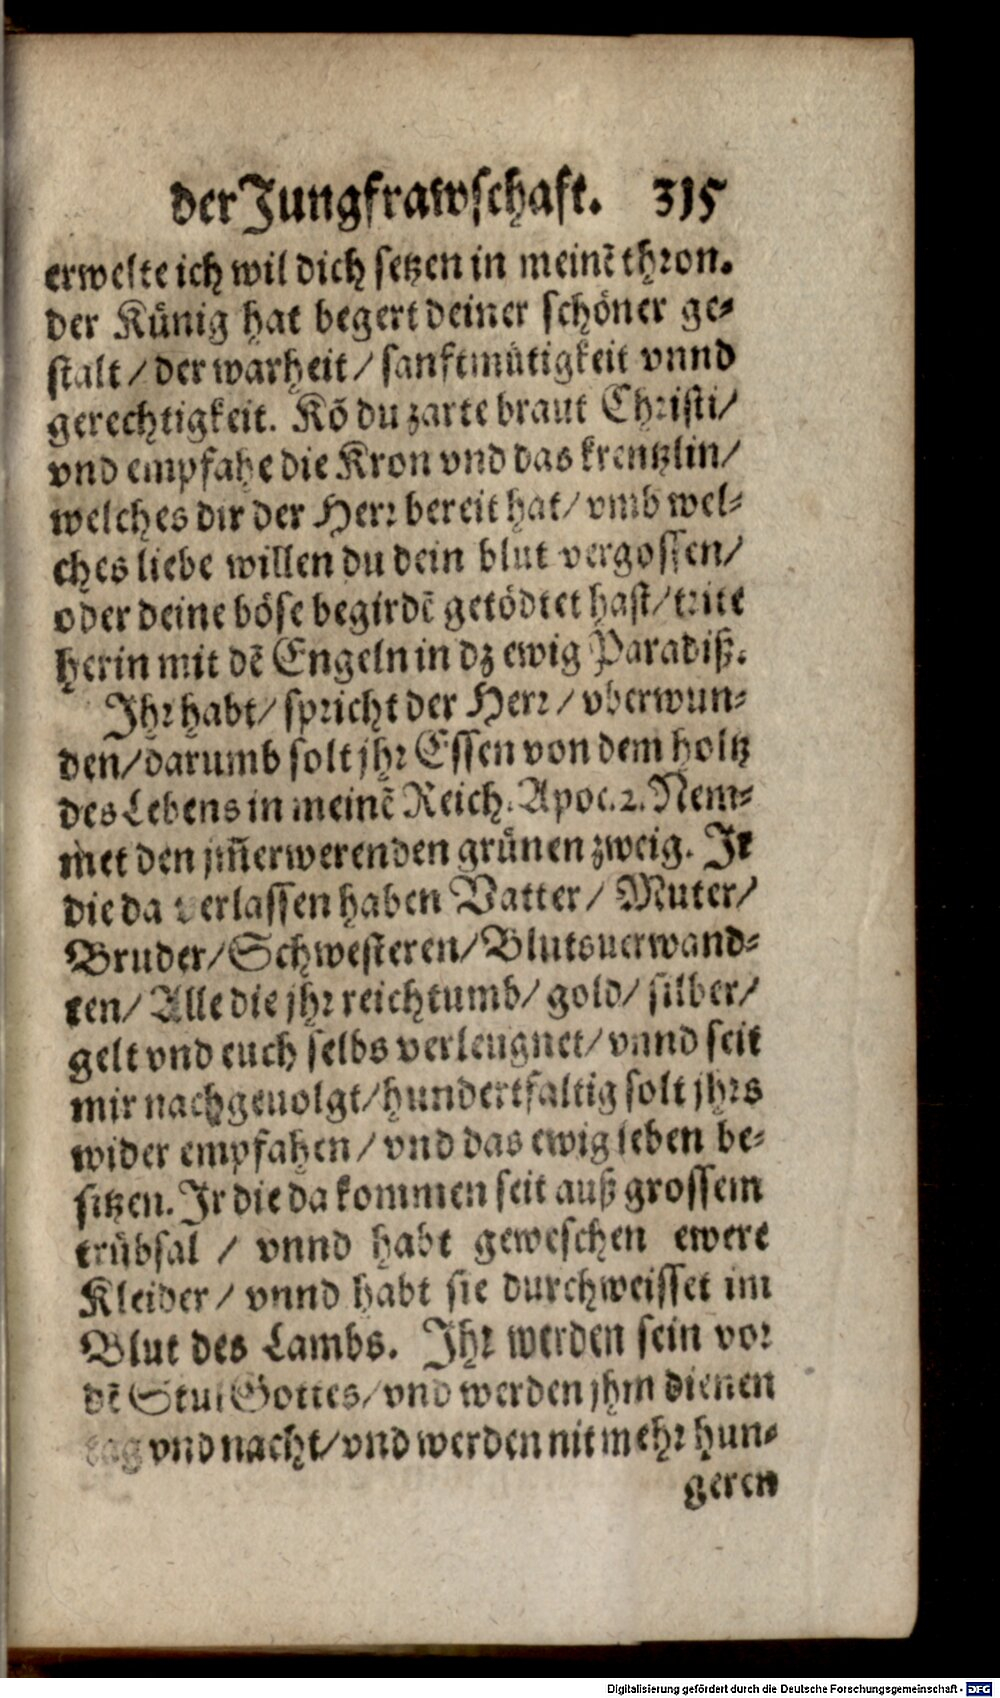 der Jungfrawschaft. 315
erwelte ich wil dich setzen in meinē thron.
der Künig hat begert deiner schöner ge-
stalt / der warheit / sanftmütigkeit vnnd
gerechtigkeit. Kō du zarte braut Christi/
vnd empfahe die Kron vnd das krentzlin/
welches dir der Herr bereit hat/ vmb wel-
ches liebe willen du dein blut vergossen/
oder deine böse begirdē getödtet hast/ tritt
herin mit dē Engeln in dz ewig Paradiß.
Ihr habt/ spricht der Herr / vberwun-
den/ darumb solt jhr Essen von dem holtz
des Lebens in meinē Reich. Apoc. 2. Nem-
met den jm̄erwerenden grünen zweig. Ir
die da verlassen haben Vatter / Muter/
Bruder/ Schwesteren/ Blutsuerwand-
ten/ Alle die jhr reichtumb/ gold/ silber/
gelt vnd euch selbs verleugnet/ vnnd seit
mir nachgeuolgt/ hundertfaltig solt jhrs
wider empfahen / vnd das ewig leben be-
sitzen. Ir die da kommen seit auß grossem
trübsal / vnnd habt geweschen ewere
Kleider / vnnd habt sie durchweisset im
Blut des Lambs. Ihr werden sein vor
dē Stul Gottes/ vnd werden jhm dienen
tag vnd nacht/ vnd werden nit mehr hun-
geren
Digitalisierung gefördert durch die Deutsche Forschungsgemeinschaft - DFG